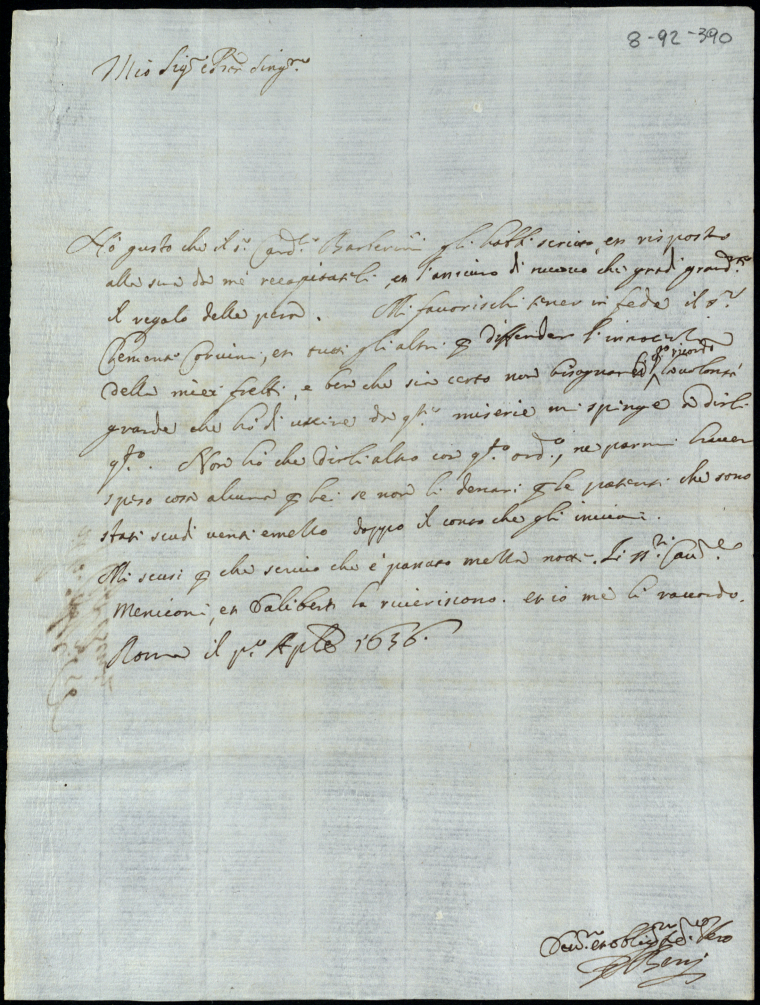 8-92-390
Mio Sig.re e Pron Sing.re
Hò gusto che il S.r Card.le Barberini gli habbi scritto, et in risposta
alla sua da me recapitatali, et l'assicuro di nuovo che gradì grand.te
il regalo delle pera. Mi favorischi tener in fede il S.r
Clemente et tutti gli altri p diffender l'innocentia
della miei fr̃elli, e ben che sia certo non bisognarli q.to ricordo la volontà
grande che hò di uscire da q.te miserie mi spinge a dirli
q.to. Non hò che dirli altro con q.to ord.o, ne parmi haver
speso cosa alcuna p lei se non li denari p le patenti che sono
stati scudi venti e mezzo doppo il conto che gli inviai.
Mi scusi p che scrivo che è passato mezza notte. Li SS.ri Cav.re
Meniconi, et Daliberti la riveriscono. et io me li raccordo.
Roma il p.o Ap̃le 1636.
Dev.mo et obblig.mo Ser.re Vero